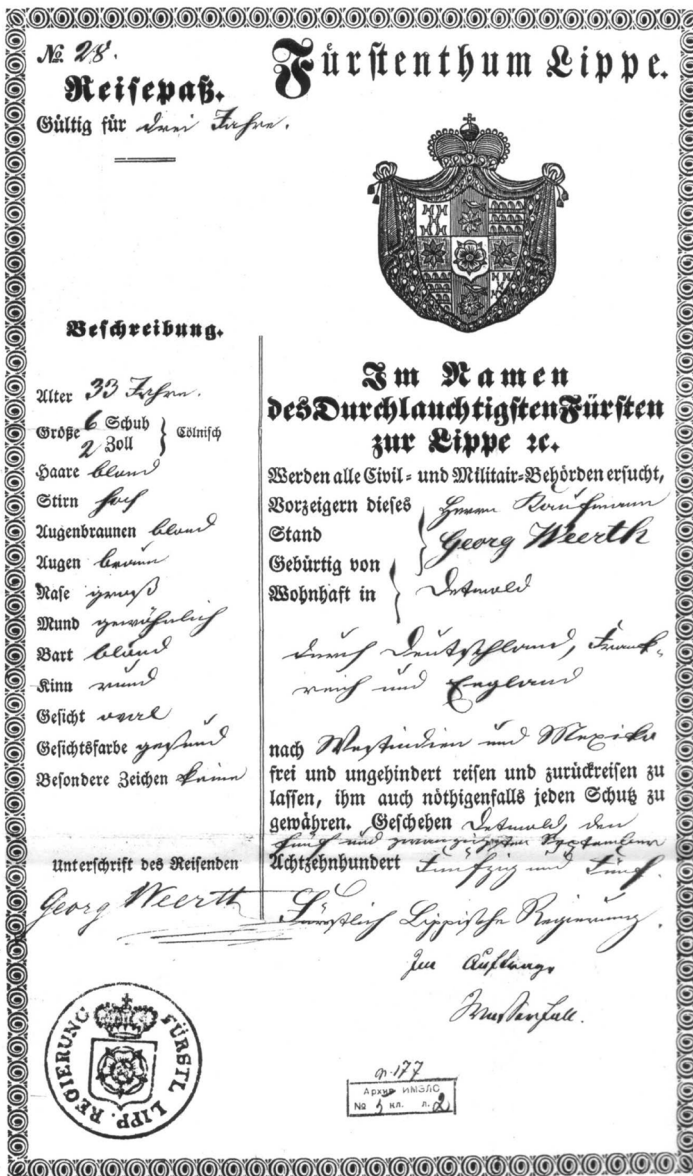 № 28.
Reisepaß.
Gültig für drei Jahre.
Fürstenthum Lippe.
Beschreibung.
Alter 33 Jahre.
Größe 6 Schuh
2 Zoll } Cölnisch
Haare blond
Stirn hoch
Augenbraunen blond
Augen braun
Nase groß
Mund gewöhnlich
Bart blond
Kinn rund
Gesicht oval
Gesichtsfarbe gesund
Besondere Zeichen keine
Unterschrift des Reisenden
Georg Weerth
Im Namen
des Durchlauchtigsten Fürsten
zur Lippe ꝛc.
Werden alle Civil- und Militair-Behörden ersucht,
Vorzeigern dieses Herrn Kaufmann
Stand Georg Weerth
Gebürtig von
Wohnhaft in Detmold
durch Deutschland, Frank-
reich und England
nach Westindien und Mexiko
frei und ungehindert reisen und zurückreisen zu
lassen, ihm auch nöthigenfalls jeden Schutz zu
gewähren. Geschehen Detmold, den
fünf und zwanzigsten September
Achtzehnhundert Fünfzig und Fünf.
Fürstlich Lippische Regierung.
Im Auftrage
FÜRSTL. LIPP. REGIERUNG
177
Архив ИМЭЛС
№ кл. л. 2